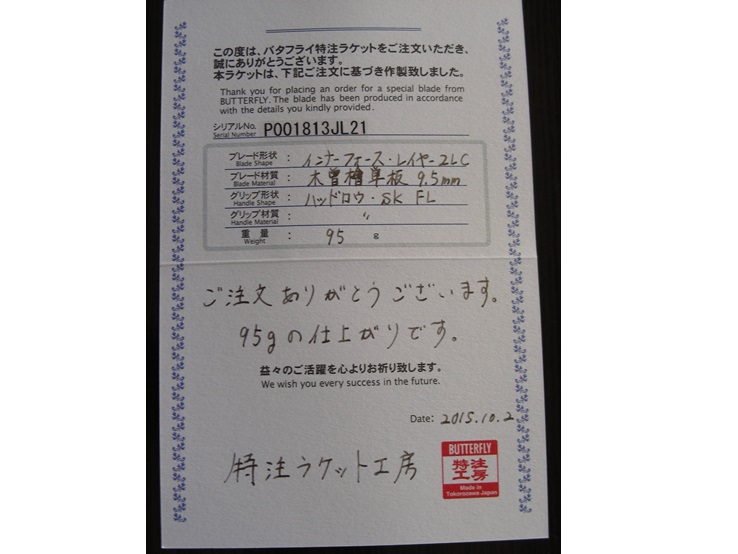 この度は、バタフライ特注ラケットをご注文いただき、
誠にありがとうございます。
本ラケットは、下記ご注文に基づき作製致しました。
Thank you for placing an order for a special blade from
BUTTERFLY. The blade has been produced in accordance
with the details you kindly provided.
シリアルNo. P001813JL21
Serial Number
ブレード形状 : インナーフォース・レイヤー2LC
Blade Shape
ブレード材質 : 木曽檜単板 9.5mm
Blade Material
グリップ形状 : ハッドロウ・SK FL
Handle Shape
グリップ材質 : 〃
Handle Material
重量 : 95 g
Weight
ご注文ありがとうございます。
95gの仕上がりです。
益々のご活躍を心よりお祈り致します。
We wish you every success in the future.
Date: 2015.10.2
特注ラケット工房
BUTTERFLY
特注
工房
Made in
Tokorozawa Japan